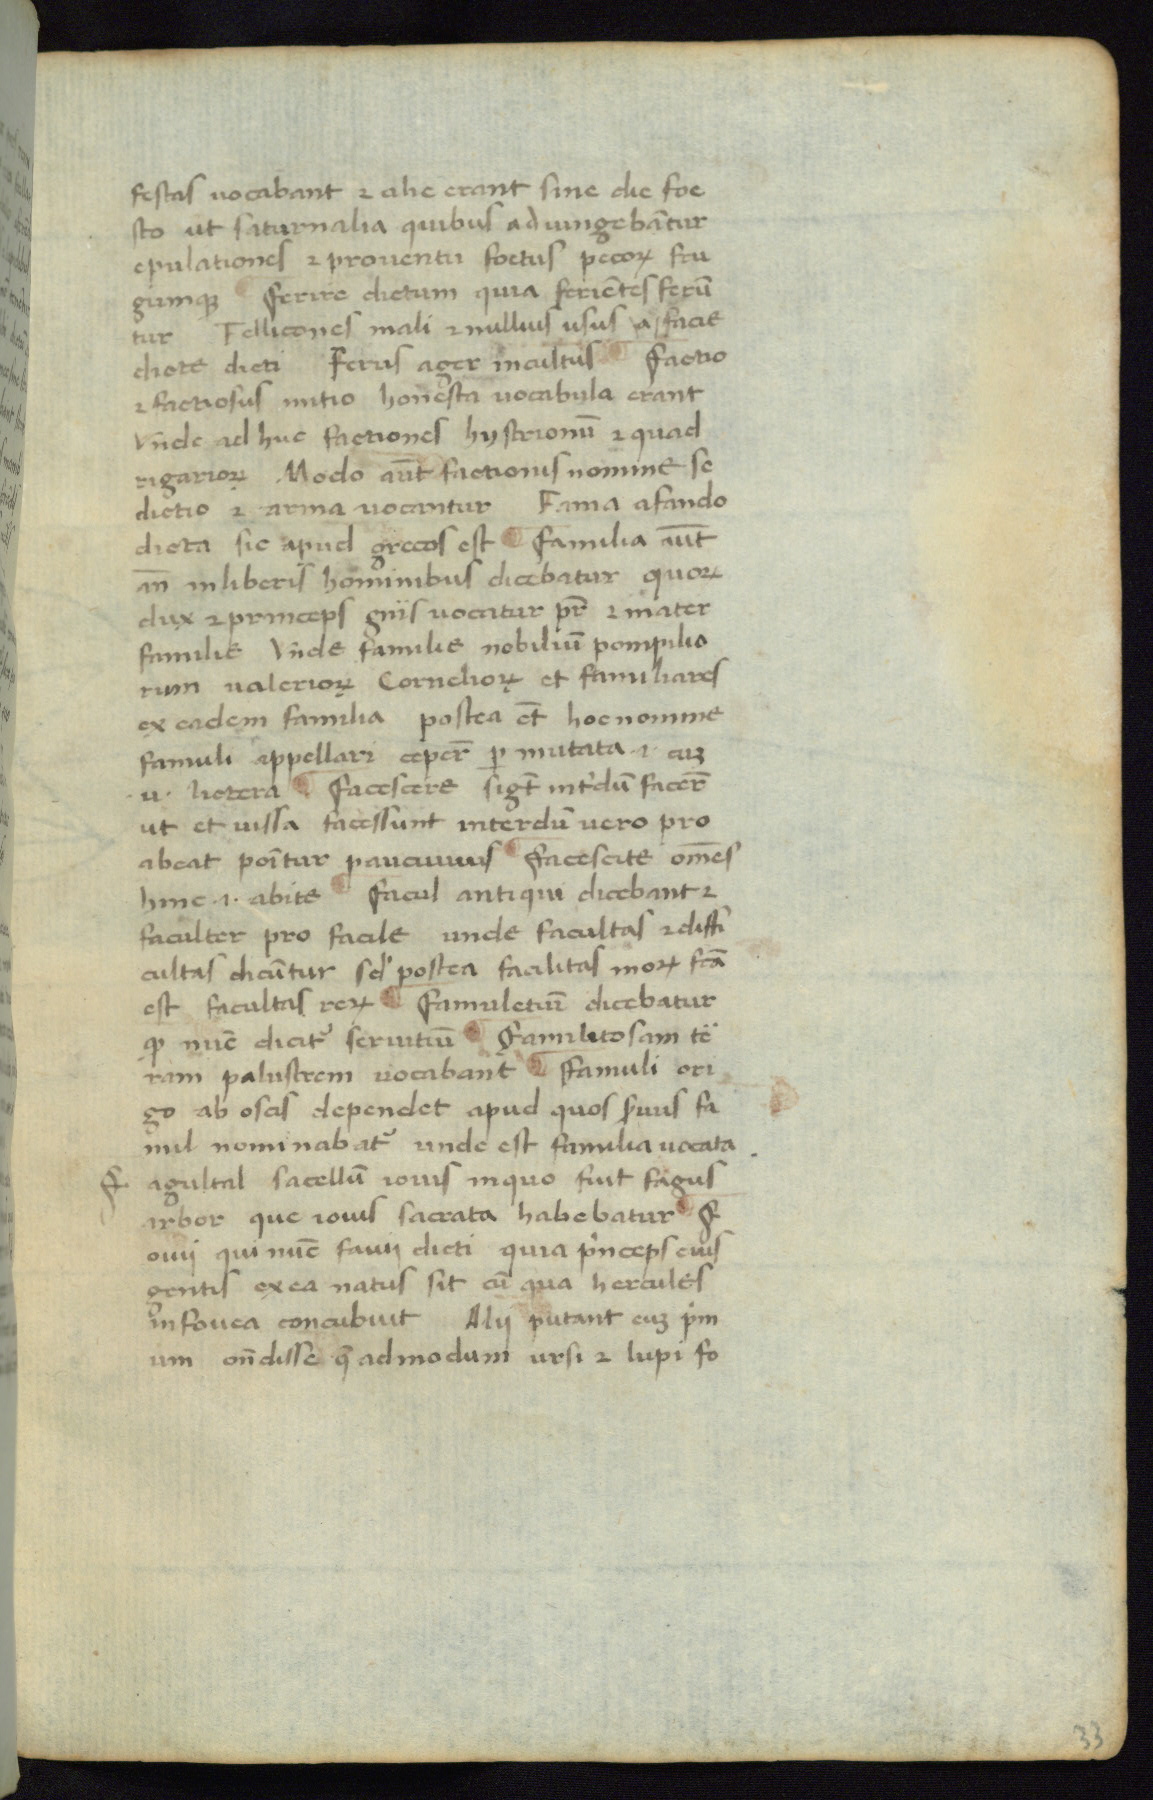 festas uocabant ⁊ alie erant sine die foe
sto ut saturnalia quibus adiungebãtur
epulationes ⁊ prouentu foetus pecoꝝ fru
gumqꝫ Ferire dictum quia feriẽtes ferũ
tur Fellicones mali ⁊ nullius usus a facie
diote dicti Ferus ager incultus Factio
⁊ factiosus initio honesta uocabula erant
Vñde ad huc factiones hystrionũ ⁊ quad
rigarioꝝ Modo aũt factionis nomine se
ditio ⁊ arma uocantur Fama afando
dicta sic apud grecos est Familia aũt
añ inliberis hominibus dicebatur quoꝝ
dux ⁊ princeps gñis uocatur pr̃ ⁊ mater
familie Vñde familie nobiliũ pompilio
rum ualerioꝝ Cornelioꝝ et familiares
ex eadem familia postea et̃ hoc nomine
famuli appellari ceper̃ ꝑmutata ·i· cuꝫ
·u· littera Facescere sigt̃ int̃dũ facer̃
ut et iussa facessunt interdũ uero pro
abeat poĩtur pacuuius Facescite om̃es
hinc ·i· abite Facul antiqui dicebant ⁊
faculter pro facile unde facultas ⁊ diffi
cultas dicũtur sed postea facilitas moꝝ fc̃a
est facultas reꝝ Famuletiũ dicebatur
qđ nũc dicit᷑ seruitiũ Familitosam te᷑
ram palustrem uocabant Famuli ori
go ab oscis dependet apud quos ſuus fa
mul nominabat᷑ unde est familia uocata
F agultal sacellũ iouis inquo fuit fagus
arbor que iouis sacrata habebatur F
ouij qui nũc fauij dicti quia p̃nceps eius
gentis ex ea natus sit cũ qua hercules
infouea concubuit Alij putant euꝫ p̃m
um oñdisse q̃admodum ursi ⁊ lupi fo
33